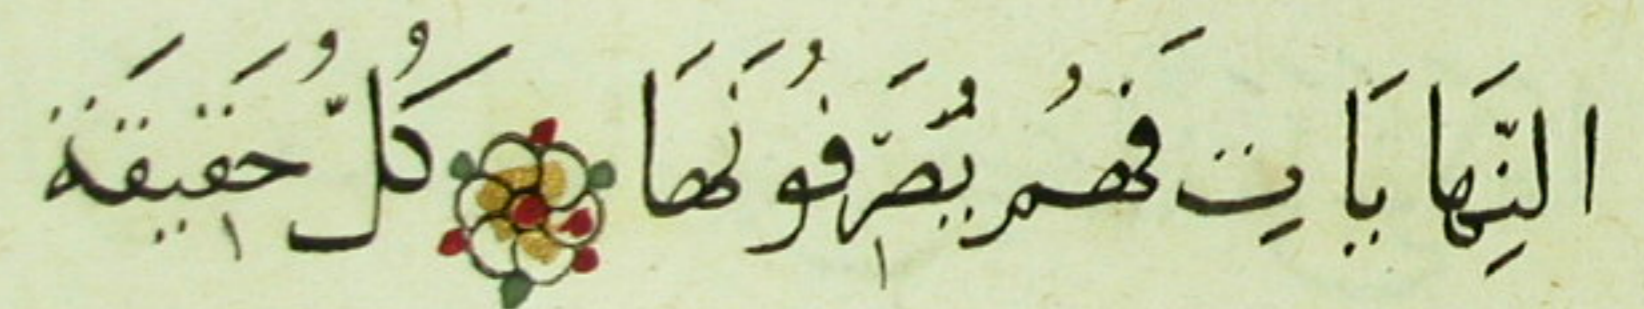 النِّهَايَاتِ فَهُمُ يُصَرِّفُونَهَا كُلُّ حَقِيقَةٍ